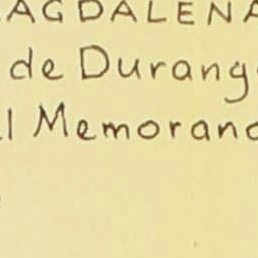 AGDALENA
de Durang
l Memorand